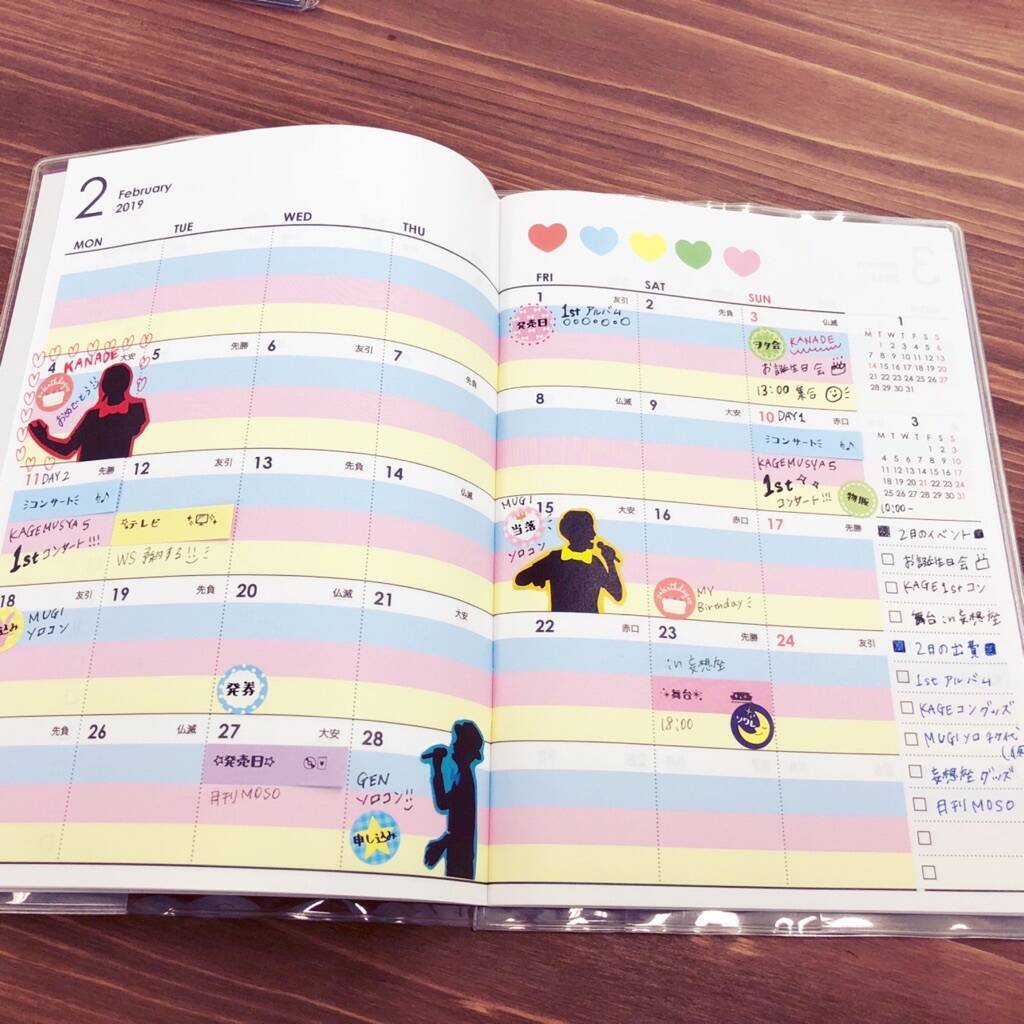 2 February
2019
MON TUE WED THU
4 KANADE 大安
Birthday
おめでとう!
5 先勝
6 友引
7 先負
11 DAY2 先勝
コンサート
KAGEMUSYA5
1stコンサート!!!
12 友引
テレビ
WS 予約する!!
13 先負
14 仏滅
18 友引
MUGI
ソロコン
込み
19 先負
20 仏滅
発券
21 大安
先負
26 仏滅
27 大安
☆発売日☆
月刊MOSO
28
GEN
ソロコン!!
申し込み
FRI SAT SUN
1 友引
発売日
1stアルバム
○○○○○○
2 先負
3 仏滅
ヲタ会 KANADE
お誕生日会
13:00 集合
8 仏滅
9 大安
10 DAY1 赤口
コンサート
KAGEMUSYA5
1st
コンサート!!!
物販
10:00-
MUGI
15 大安
当落
ソロコン
16 赤口
Birthday
MY
Birthday
17 先勝
22 赤口
23 先勝
in 妄想座
舞台
18:00
ソワレ
24 友引
1
M T W T F S S
1 2 3 4 5 6
7 8 9 10 11 12 13
14 15 16 17 18 19 20
21 22 23 24 25 26 27
28 29 30 31
3
M T W T F S S
1 2 3
4 5 6 7 8 9 10
11 12 13 14 15 16 17
18 19 20 21 22 23 24
25 26 27 28 29 30 31
2月のイベント
お誕生日会
KAGE1stコン
舞台 in 妄想座
2月の出費
1stアルバム
KAGEコングッズ
MUGIソロチケ代
妄想座グッズ
月刊MOSO